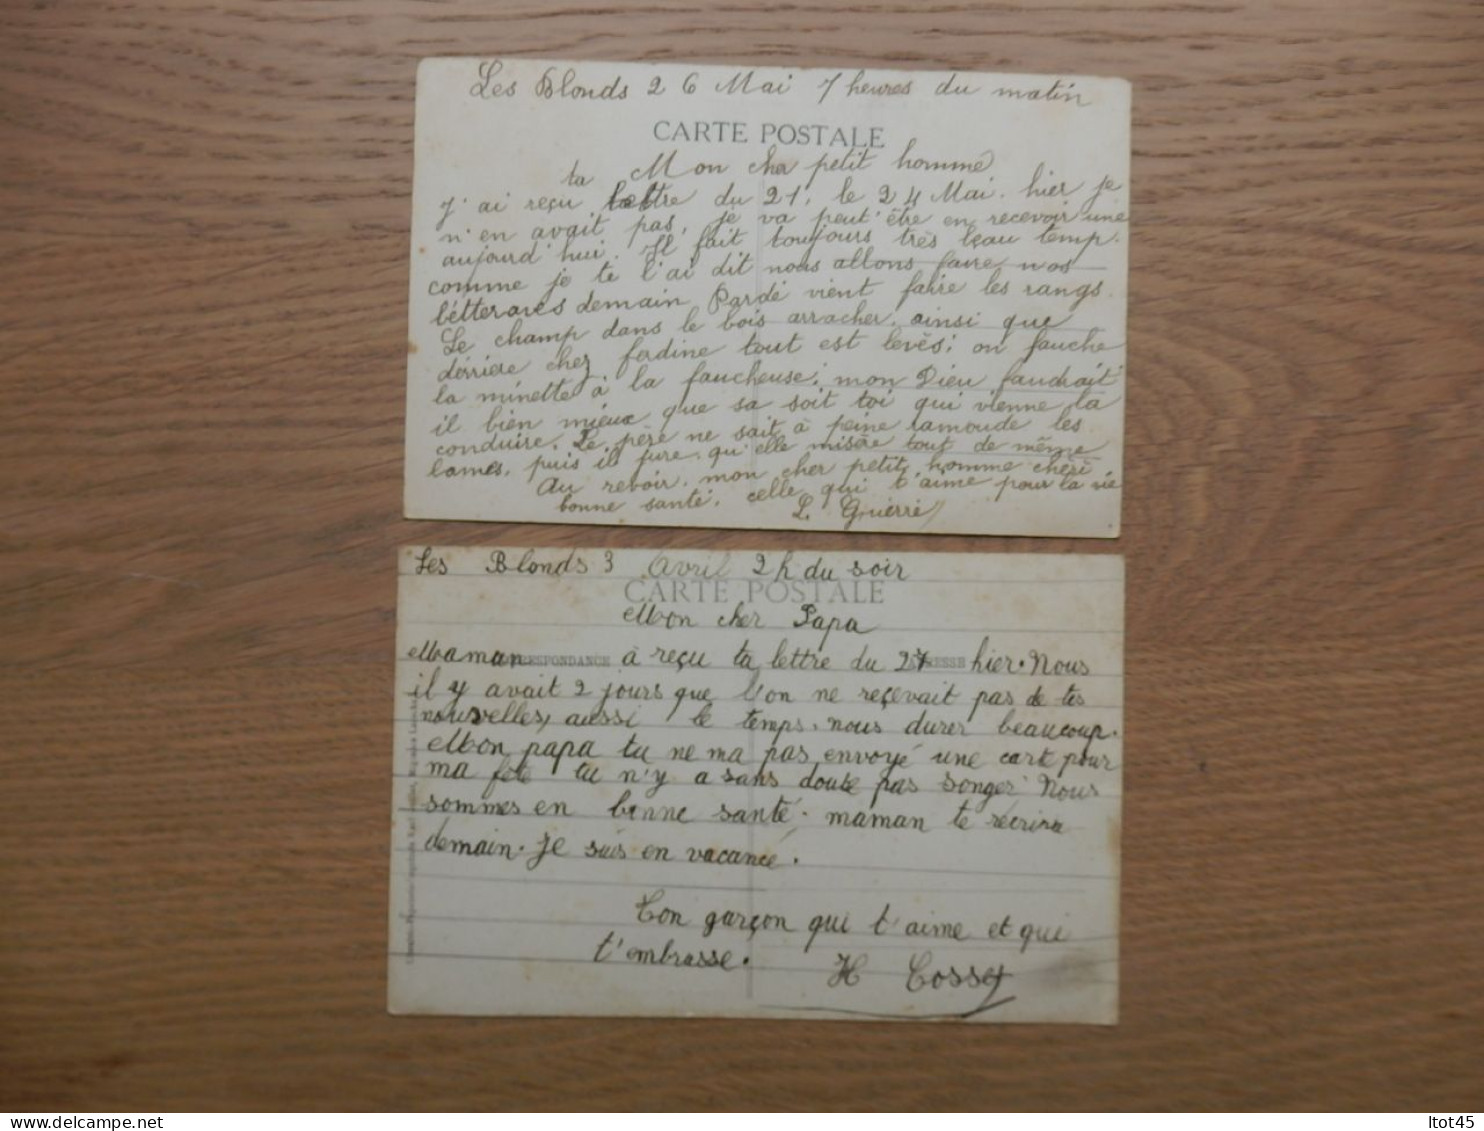 Les Blonds 26 Mai 7 heures du matin
CARTE POSTALE
Mon cher petit homme
ta
J'ai reçu lettre du 21, le 24 Mai. hier je
n'en avait pas, je va peut'être en recevoir une
aujourd'hui. Il fait toujours très beau temp.
comme je te l'ai dit nous allons faire nos
bétteraves demain Pardé vient faire les rangs.
Le champ dans le bois arracher, ainsi que
dérriere chez ferdine tout est levés; on fauche
la minette à la faucheuse; mon Dieu faudrait
il bien mieux que sa soit toi qui vienne la
conduire. Le père ne sait à peine ramoude les
lames, puis il jure, qu'elle misère tout de même
Au revoir, mon cher petit homme chéri
bonne santé, celle qui t'aime pour la vie
L. Guierre
Les Blonds 3 Avril 2h du soir
CARTE POSTALE
Mon cher Papa
CORRESPONDANCE
ADRESSE
Maman à reçu ta lettre du 27 hier. Nous
il y avait 2 jours que l'on ne reçevait pas de tes
nouvelles, aussi le temps. nous durer beaucoup.
Mon papa tu ne ma pas envoyé une carte pour
ma fete tu n'y a sans doute pas songer Nous
sommes en bonne santé. maman te récrira
demain. Je suis en vacance.
Ton garçon qui t'aime et qui
t'embrasse.
H Cossy
Itot45